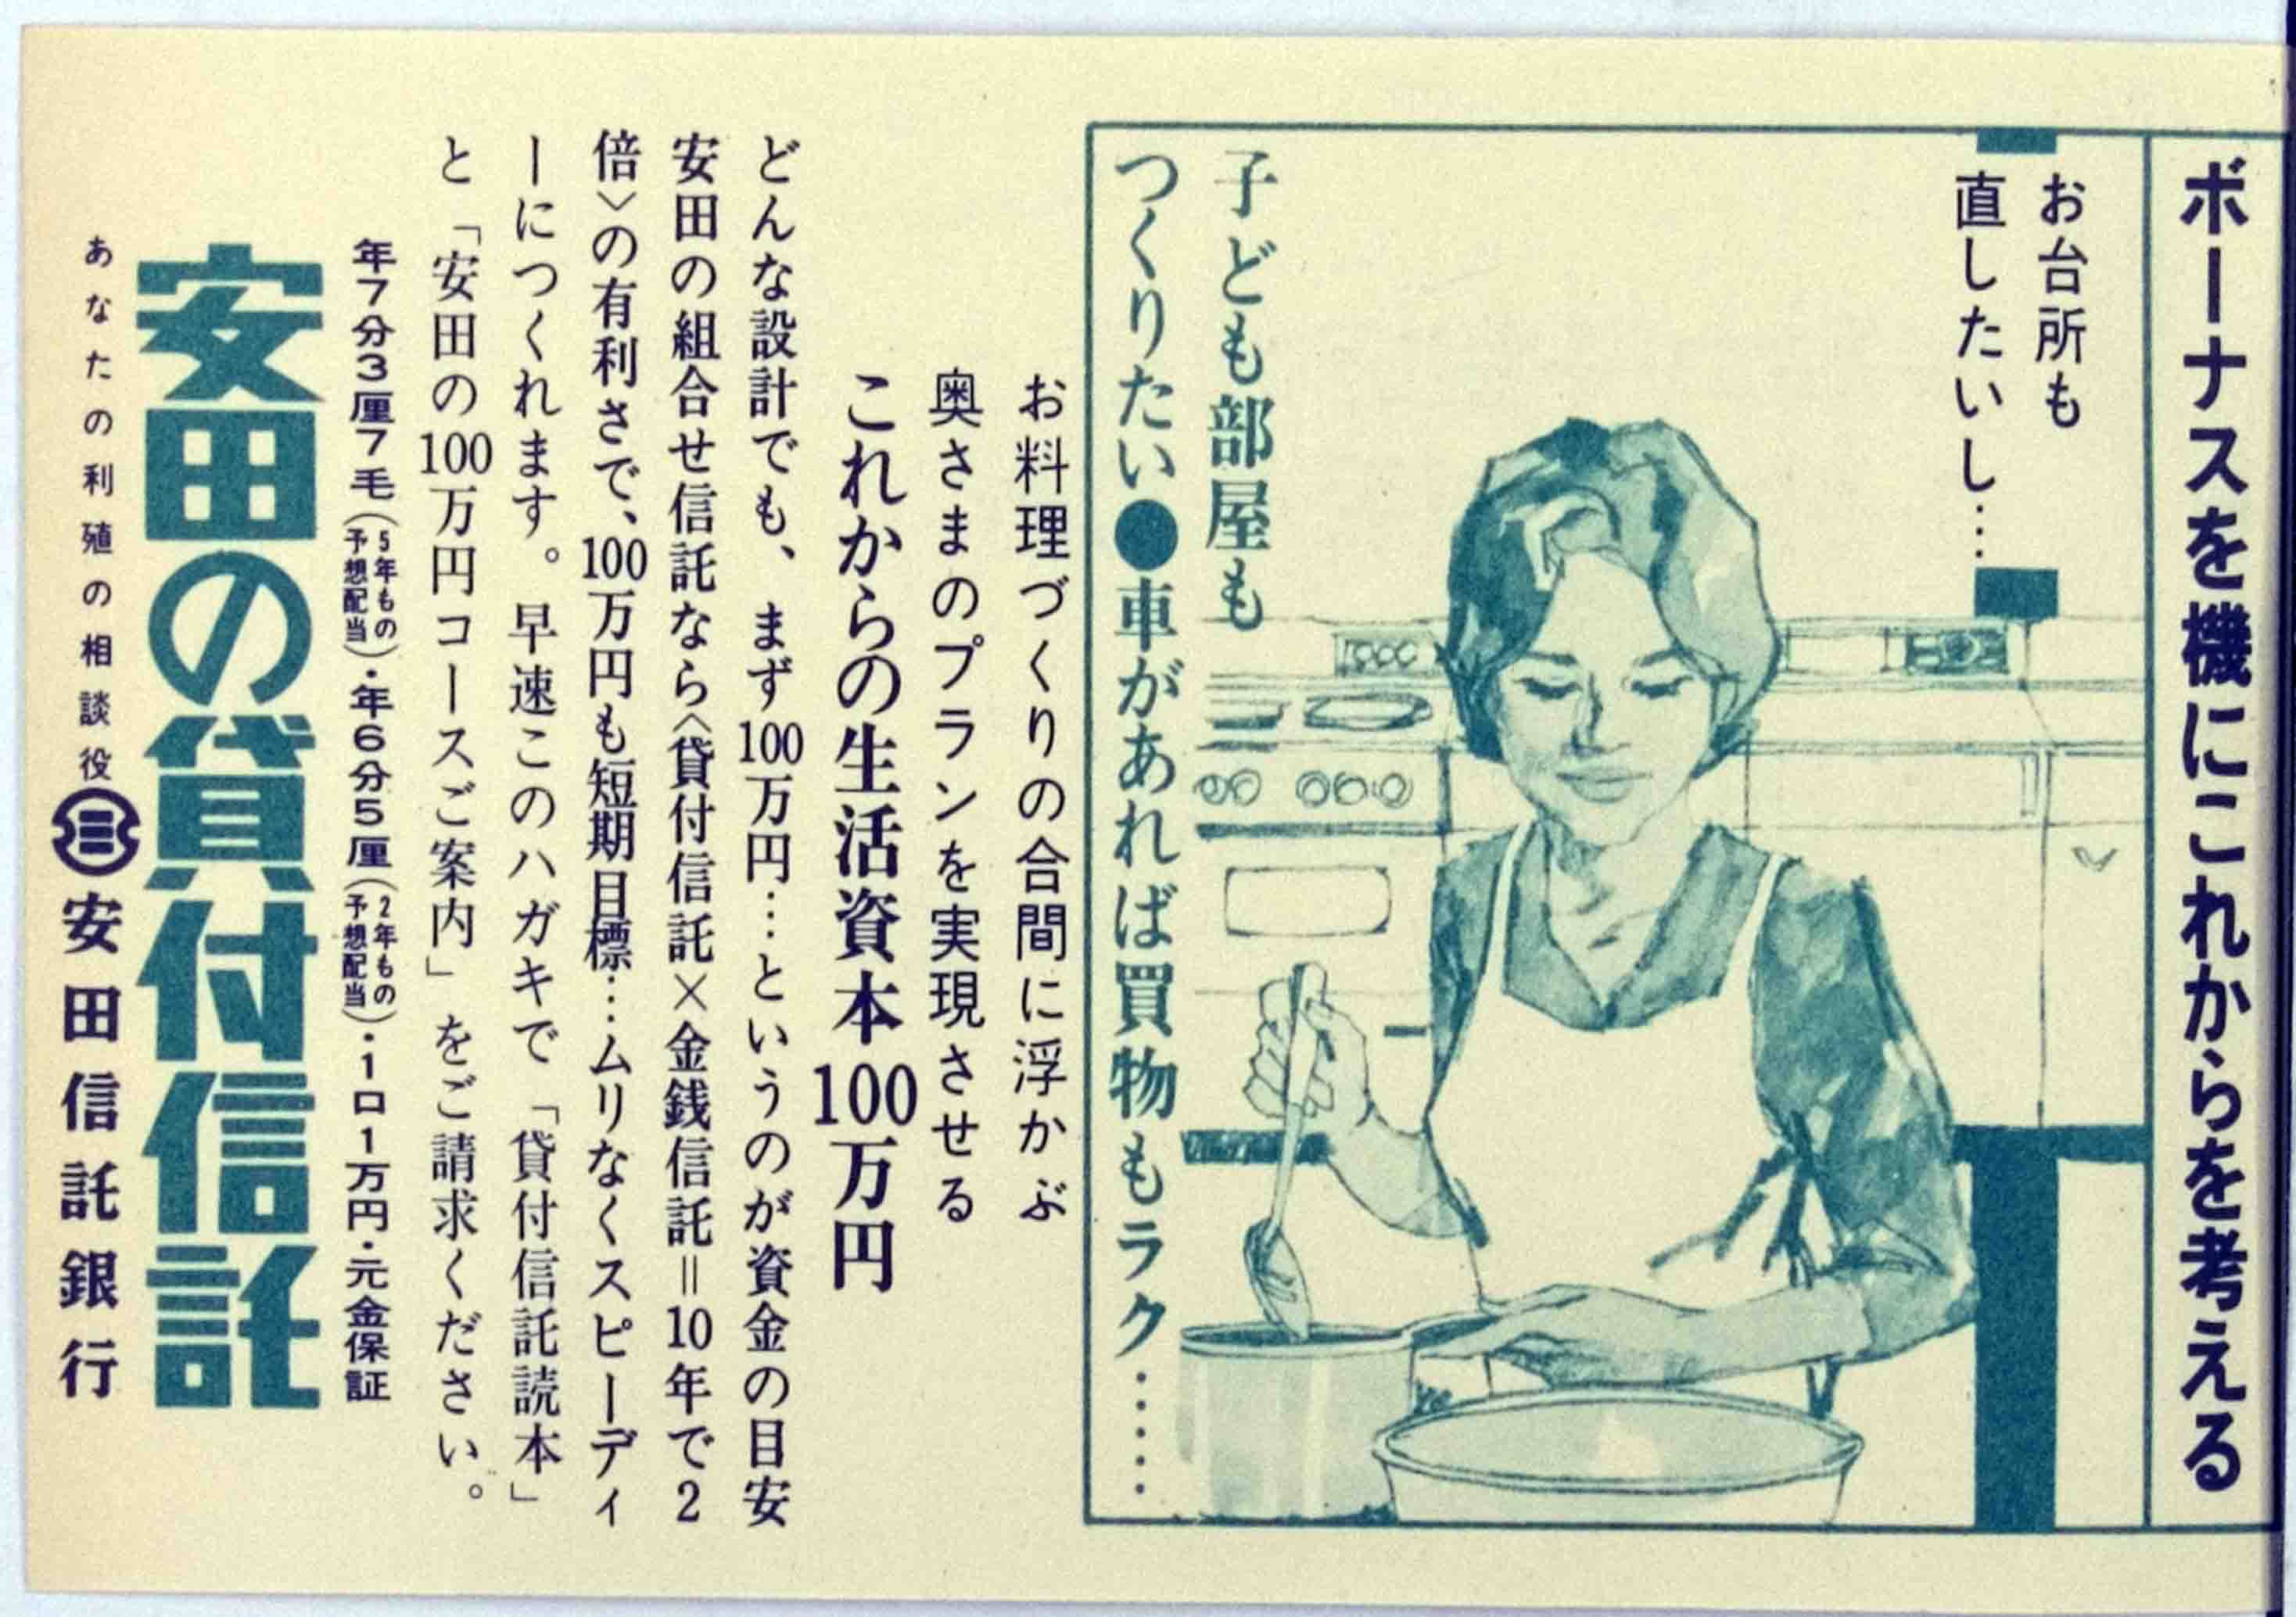 ボーナスを機にこれからを考える
お台所も
直したいし…
子ども部屋も
つくりたい●車があれば買物もラク……
お料理づくりの合間に浮かぶ
奥さまのプランを実現させる
これからの生活資本100万円
どんな設計でも、まず100万円…というのが資金の目安
安田の組合せ信託なら〈貸付信託×金銭信託＝10年で2
倍〉の有利さで、100万円も短期目標…ムリなくスピーディ
ーにつくれます。早速このハガキで「貸付信託読本」
と「安田の100万円コースご案内」をご請求ください。
年7分3厘7毛(5年もの予想配当)・年6分5厘(2年もの予想配当)・1口1万円・元金保証
安田の貸付信託
あなたの利殖の相談役 安田信託銀行